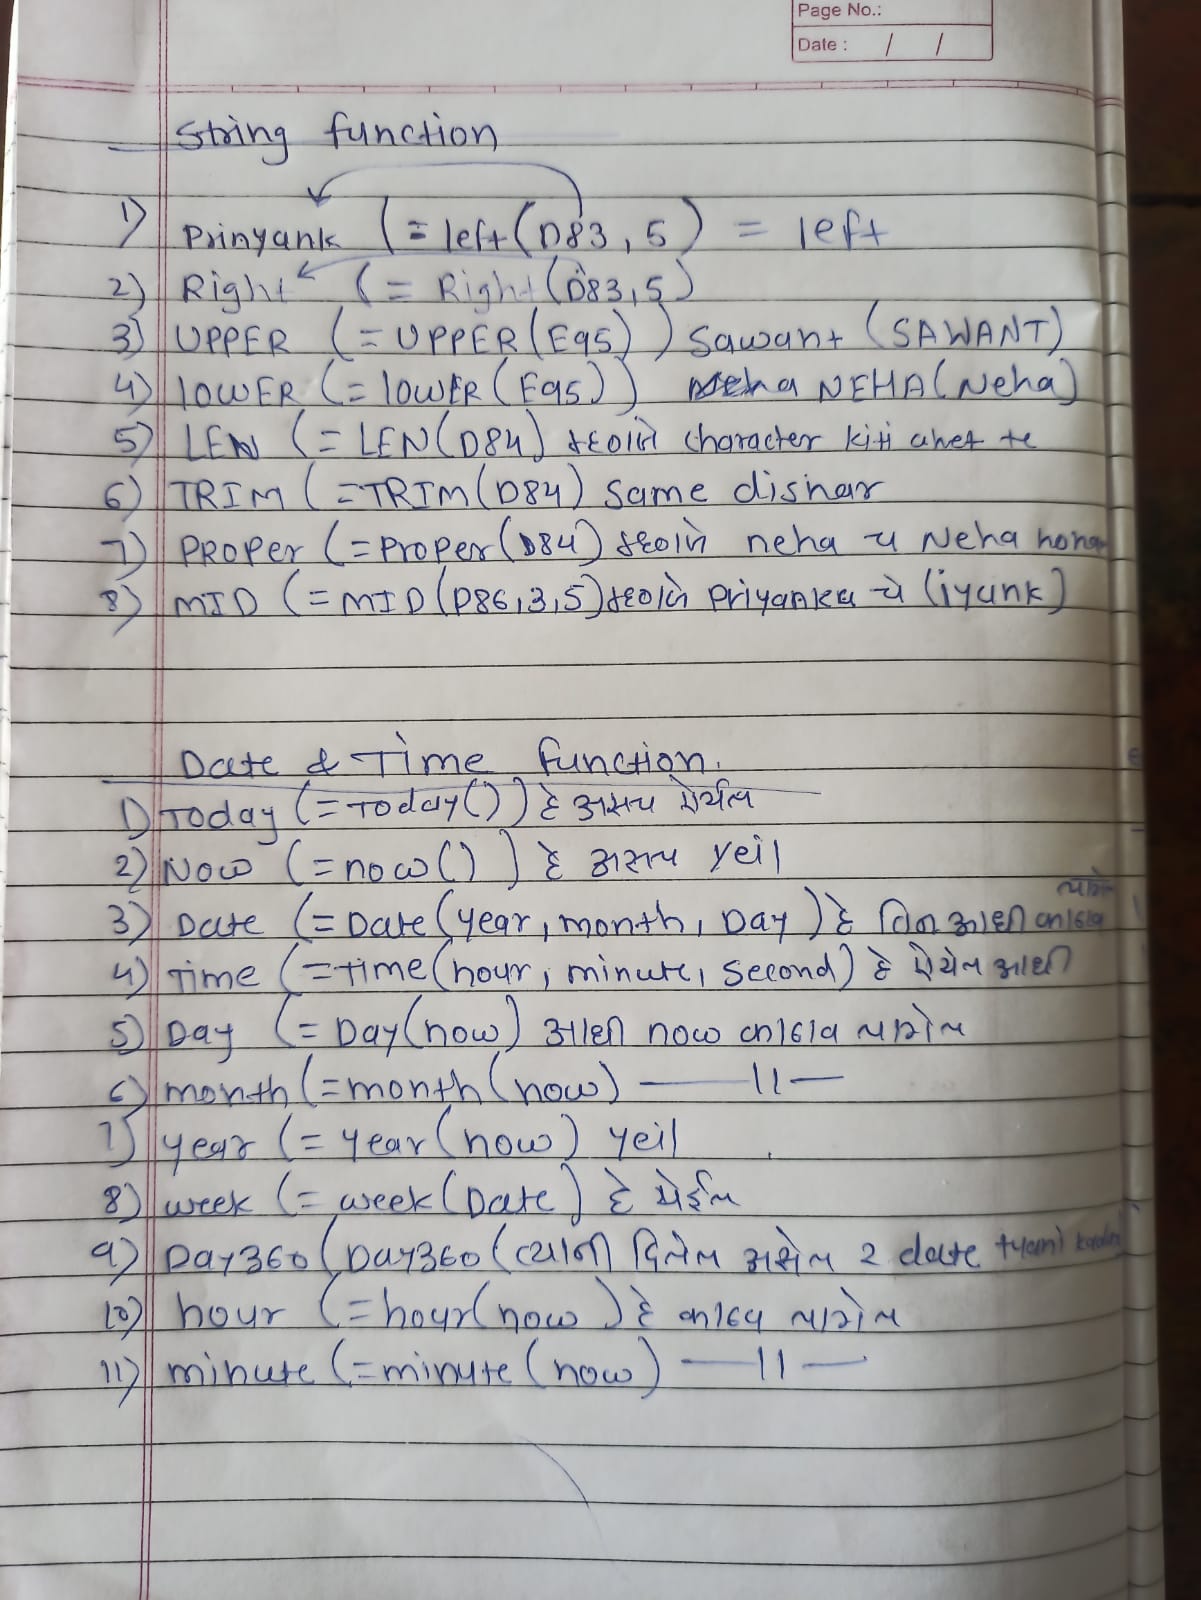 Page No.:
Date : / /
String function
1) Prinyank (= left(D83, 5) = left
2) Right (= Right(D83,5)
3) UPPER (= UPPER(E95)) Sawant (SAWANT)
4) lOWER (= lowER(E95)) NEHA (Neha)
5) LEN (= LEN(D84) character kiti ahet te
6) TRIM (=TRIM(D84) Same disnar
7) PROPer (=Proper(D84) neha च Neha hona
8) MID (=MID(D86,3,5) Priyanka चे (iyank)
Date & Time function.
1) Today (=Today()) हे असच
2) Now (=now()) हे असच yeil
3) Date (= Date(year, month, Day) हे आधी
4) Time (=time(hour, minute, Second) हे आधी
5) Day (= Day(now) आधी now
6) month (=month(now) —— 11 —
7) year (= year(now) yeil
8) week (= week(Date) हे येईल
9) Day360 (Day360( असेल 2 date
10) hour (=hour(now) हे
11) minute (=minute(now) — 11 —